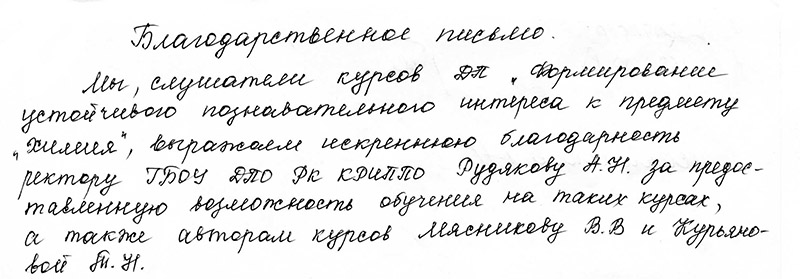 Благодарственное письмо.
Мы, слушатели курсов ДП „Формирование
устойчивого познавательного интереса к предмету
„Химия", выражаем искреннюю благодарность
ректору ГБОУ ДПО РК КРИППО Рудякову А.Н. за предос-
тавленную возможность обучения на таких курсах,
а также авторам курсов Мясникову В.В и Курьяно-
вой Т.Н.